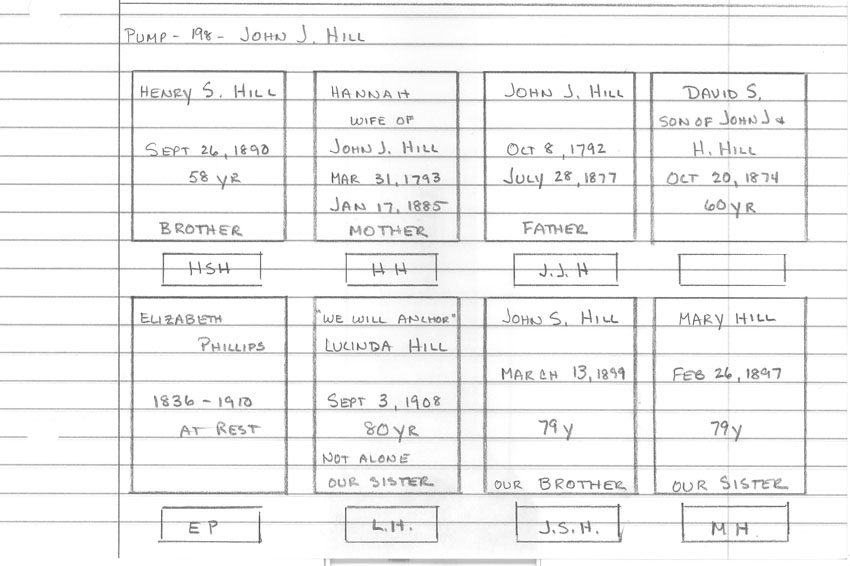 PUMP - 198 - JOHN J. HILL
HENRY S. HILL
SEPT 26, 1890
58 YR
BROTHER
HSH
HANNAH
WIFE OF
JOHN J. HILL
MAR 31, 1793
JAN 17, 1885
MOTHER
H H
JOHN J. HILL
OCT 8, 1792
JULY 28, 1877
FATHER
J. J. H
DAVID S,
SON OF JOHN J &
H. HILL
OCT 20, 1874
60 YR
ELIZABETH
PHILLIPS
1836 - 1910
AT REST
E P
"WE WILL ANCHOR"
LUCINDA HILL
SEPT 3, 1908
80 YR
NOT ALONE
OUR SISTER
L.H.
JOHN S. HILL
MARCH 13, 1899
79 Y
OUR BROTHER
J.S.H.
MARY HILL
FEB 26, 1897
79 Y
OUR SISTER
M H